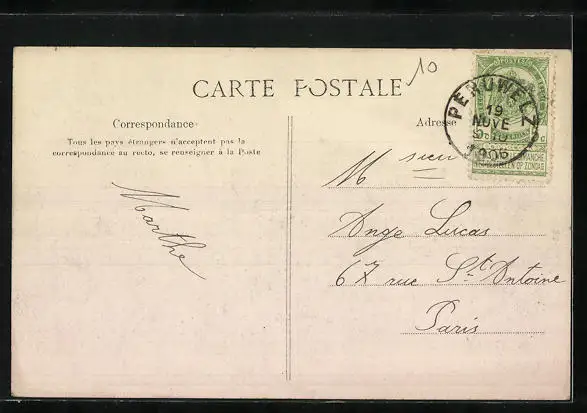 10
CARTE POSTALE
Correspondance
Tous les pays étrangers n'acceptent pas la
correspondance au recto, se renseigner à la Poste
Marthe
Adresse
PERUWELZ
19
NOVE
10
1906
POSTES
Msieur
Ange Lucas
67 rue St Antoine
Paris